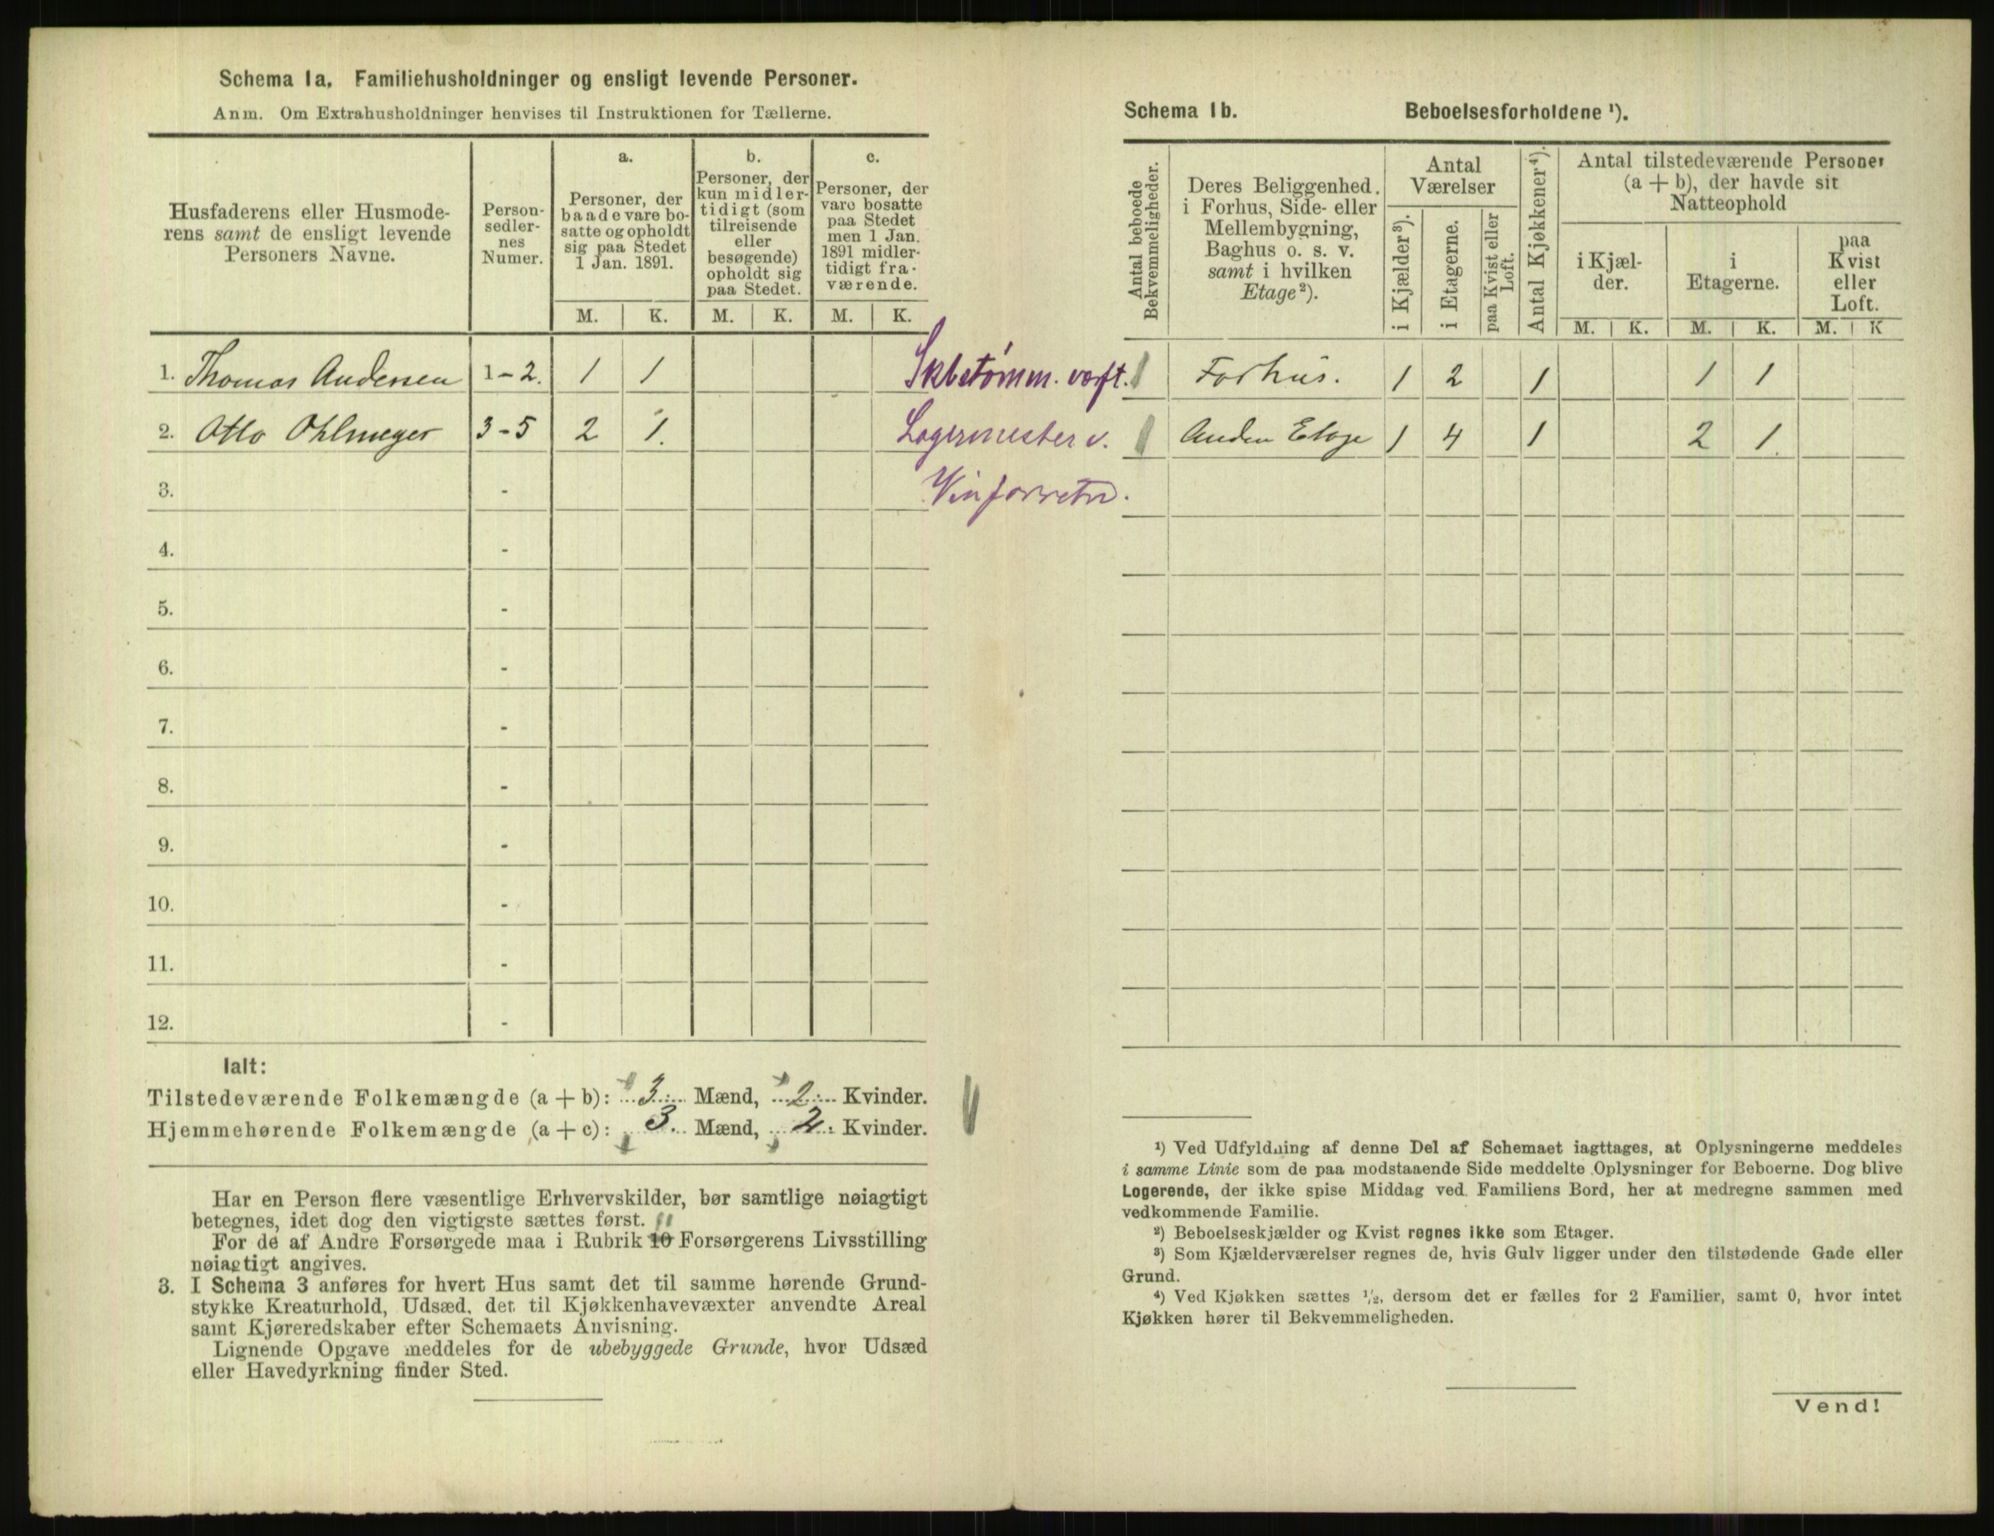 Schema 1a. Familiehusholdninger og ensligt levende Personer.
Anm. Om Extrahusholdninger henvises til Instruktionen for Tællerne.
Husfaderens eller Husmode-
rens samt de ensligt levende
Personers Navne.
Person-
sedler-
nes
Numer.
a.
Personer, der
baade vare bo-
satte og opholdt
sig paa Stedet
1 Jan. 1891.
b.
Personer, der
kun midler-
tidigt (som
tilreisende
eller
besøgende)
opholdt sig
paa Stedet.
c.
Personer, der
vare bosatte
paa Stedet
men 1 Jan.
1891 midler-
tidigt fra-
værende.
M. K. M. K. M. K.
1. Thomas Andersen 1-2. 1 1 Skbstømm. værft.
2. Otto Ohlmeyer 3-5 2 1. Lagermester v.
3. - Vinforretn.
4. -
5. -
6. -
7. -
8. -
9. -
10. -
11. -
12. -
Ialt:
Tilstedeværende Folkemængde (a + b): 3 Mænd, 2 Kvinder.
Hjemmehørende Folkemængde (a + c): 3. Mænd, 2 Kvinder.
Har en Person flere væsentlige Erhvervskilder, bør samtlige nøiagtigt
betegnes, idet dog den vigtigste sættes først. 11
For de af Andre Forsørgede maa i Rubrik 10 Forsørgerens Livsstilling
nøiagtigt angives.
3. I Schema 3 anføres for hvert Hus samt det til samme hørende Grund-
stykke Kreaturhold, Udsæd, det til Kjøkkenhavevæxter anvendte Areal
samt Kjøreredskaber efter Schemaets Anvisning.
Lignende Opgave meddeles for de ubebyggede Grunde, hvor Udsæd
eller Havedyrkning finder Sted.
Schema 1b. Beboelsesforholdene ¹).
Antal beboede
Bekvemmeligheder.
Deres Beliggenhed.
i Forhus, Side- eller
Mellembygning,
Baghus o. s. v.
samt i hvilken
Etage²).
Antal
Værelser
i Kjælder³).
i Etagerne.
paa Kvist eller
Loft.
Antal Kjøkkener⁴).
Antal tilstedeværende Personer
(a + b), der havde sit
Natteophold
i Kjæl-
der.
i
Etagerne.
paa
Kvist
eller
Loft.
M. K. M. K. M. K
1 Forhus. 1 2 1 1 1
1 Anden Etage 1 4 1 2 1.
¹) Ved Udfyldning af denne Del af Schemaet iagttages, at Oplysningerne meddeles
i samme Linie som de paa modstaaende Side meddelte Oplysninger for Beboerne. Dog blive
Logerende, der ikke spise Middag ved Familiens Bord, her at medregne sammen med
vedkommende Familie.
²) Beboelseskjælder og Kvist regnes ikke som Etager.
³) Som Kjælderværelser regnes de, hvis Gulv ligger under den tilstødende Gade eller
Grund.
⁴) Ved Kjøkken sættes ½, dersom det er fælles for 2 Familier, samt 0, hvor intet
Kjøkken hører til Bekvemmeligheden.
Vend!